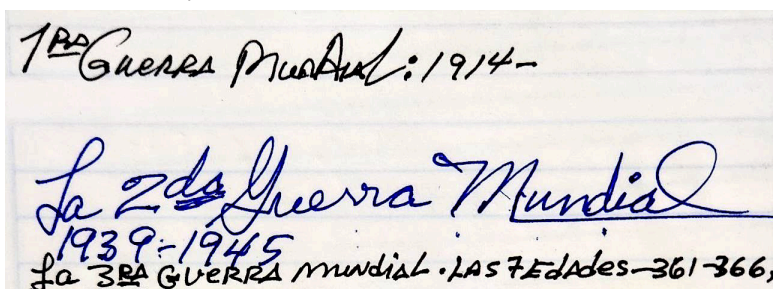 1RA GUERRA MUNDIAL: 1914-
La 2da Guerra Mundial
1939-1945
La 3RA GUERRA MUNDIAL. LAS 7 EDADES-361-366,